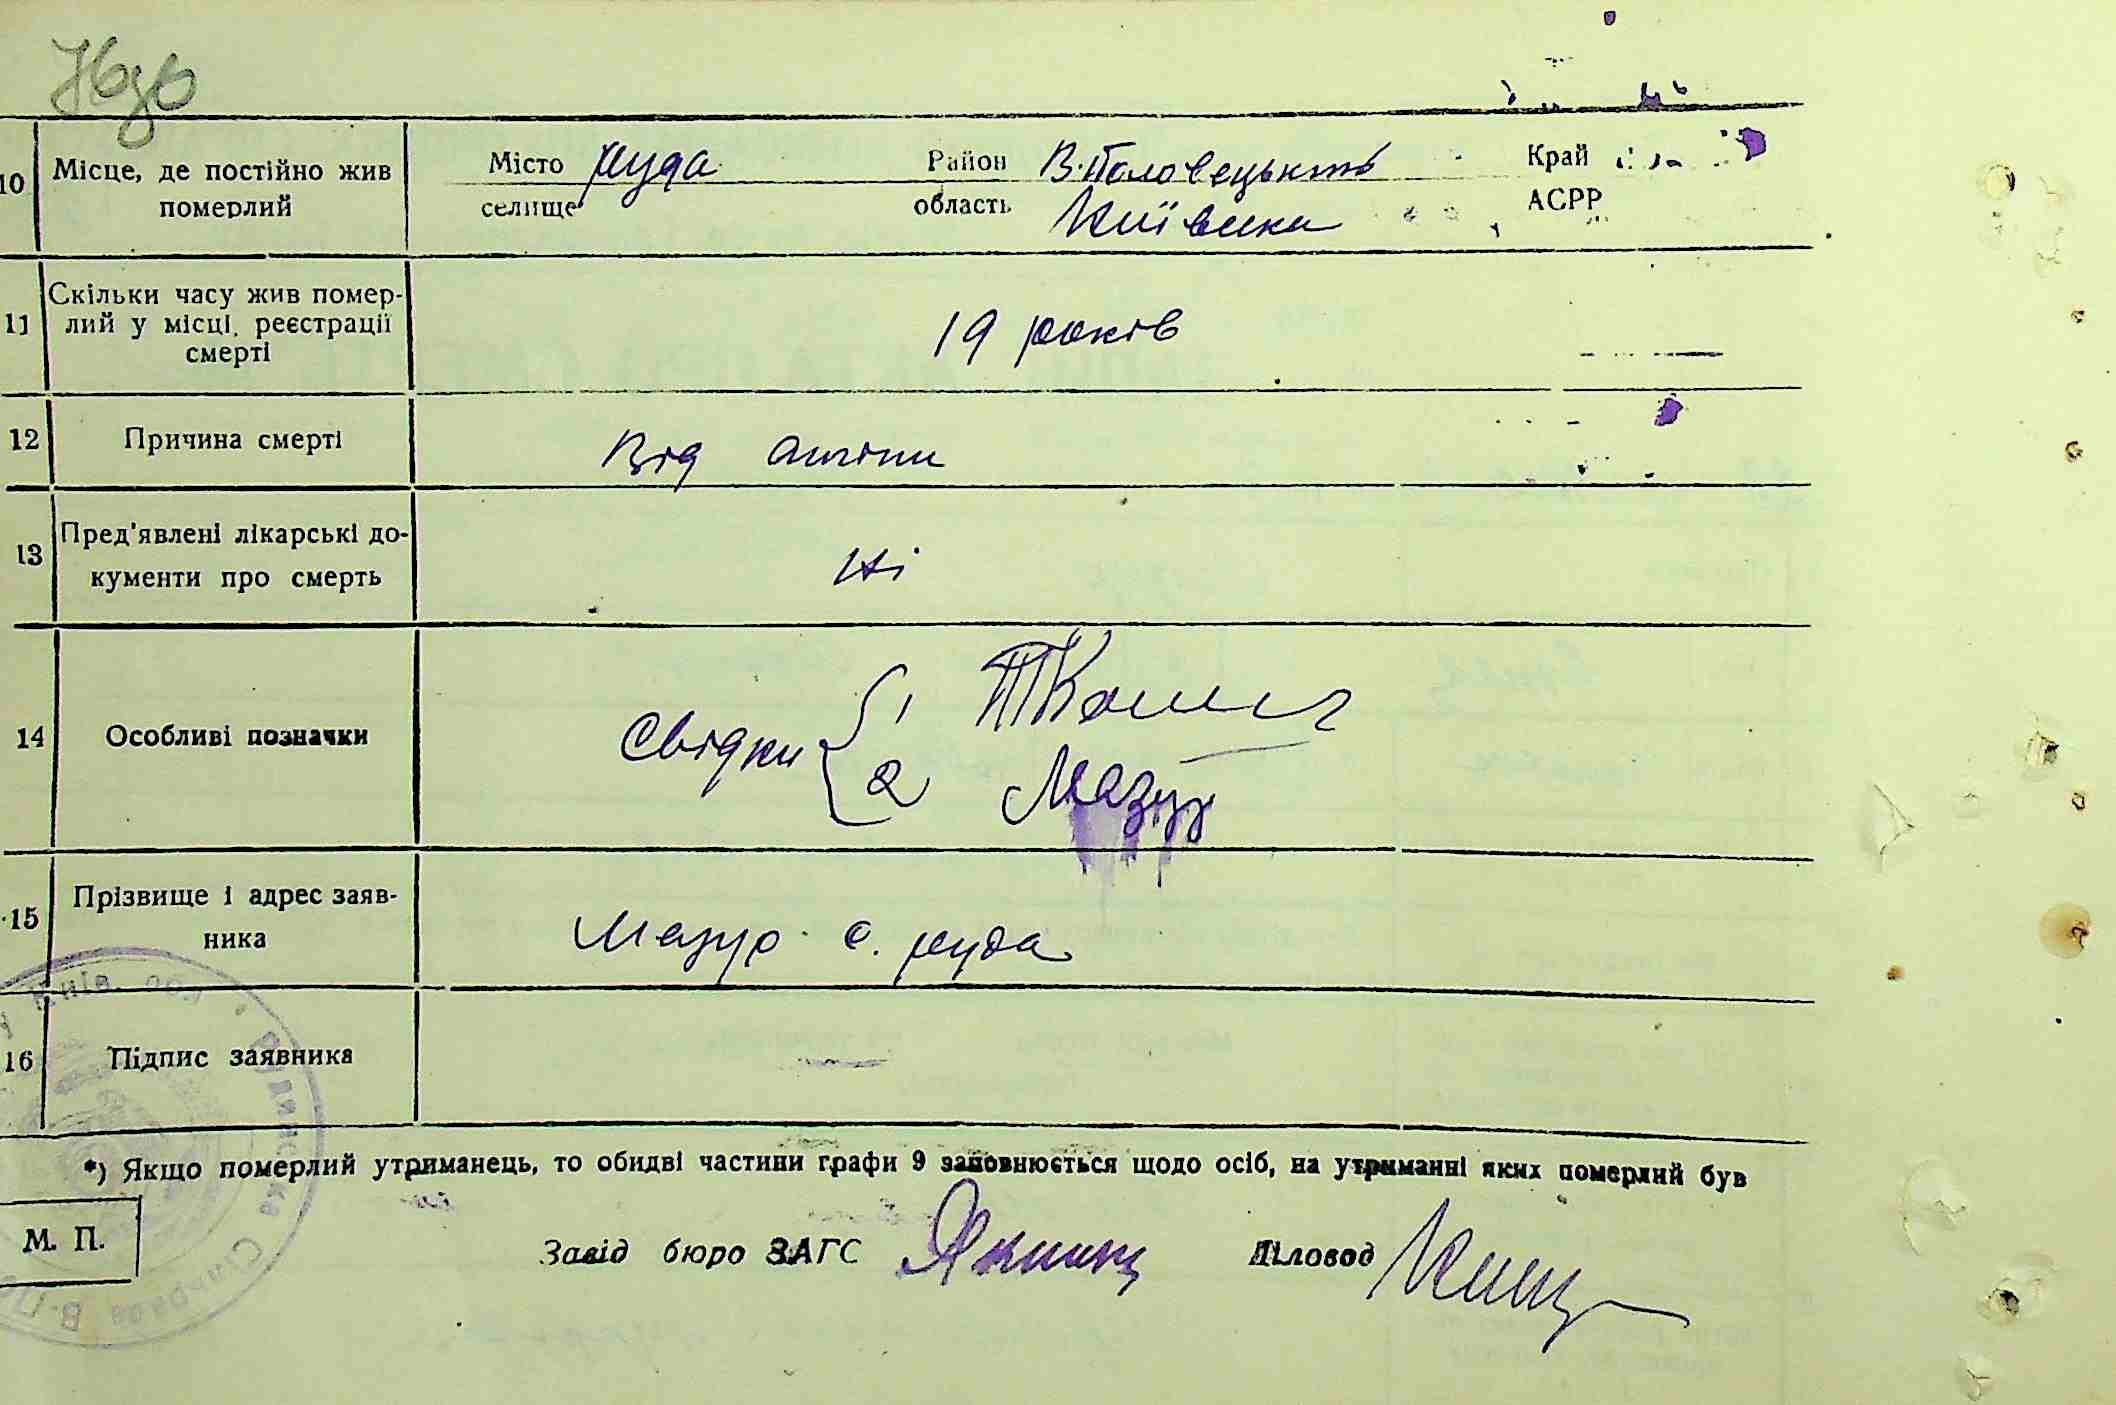 10 Місце, де постійно жив померлий
Місто руда
селище
Район В.Половецький
область Київська
Край
АСРР
11 Скільки часу жив помер-
лий у місці, реєстрації
смерті
19 років
12 Причина смерті
Від ангіни
13 Пред'явлені лікарські до-
кументи про смерть
Ні
14 Особливі позначки
Свідки 1
2 Мазур
15 Прізвище і адрес заяв-
ника
Мазур с. руда
16 Підпис заявника
*) Якщо померлий утриманець, то обидві частини графи 9 заповнюється щодо осіб, на утриманні яких померлий був
М. П.
Завід бюро ЗАГС
Діловод
Київ. обл. Рудянська Сільрада В-П